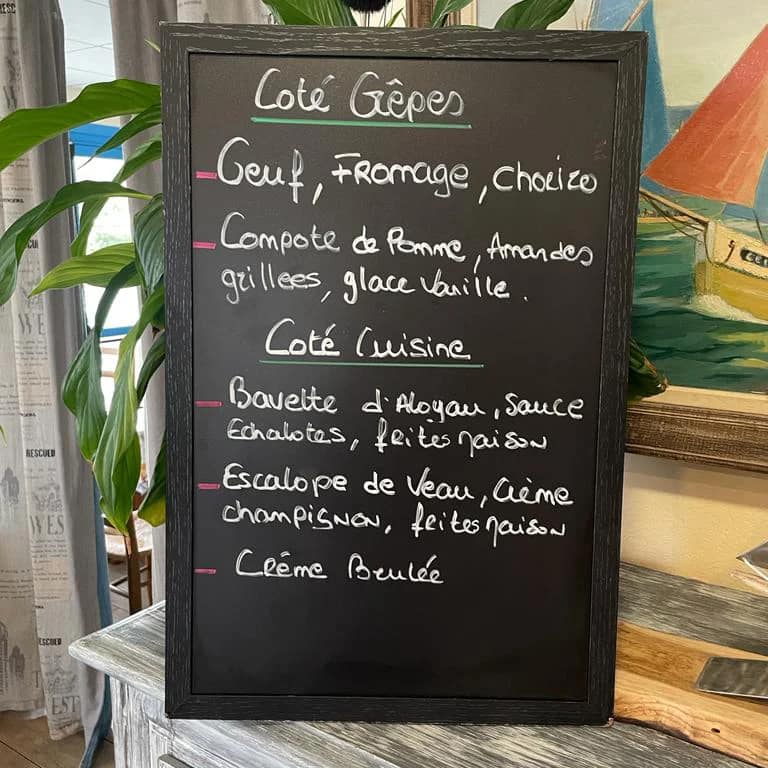 Coté Crêpes
Oeuf, Fromage, Chorizo
Compote de Pomme, Amandes
grillees, glace Vanille.
Coté Cuisine
Bavette d'Aloyau, Sauce
Echalotes, frites maison
Escalope de Veau, Crème
champignon, frites maison
Crème Brulée
WE
RESCUED
WES
RESCUED
WEST